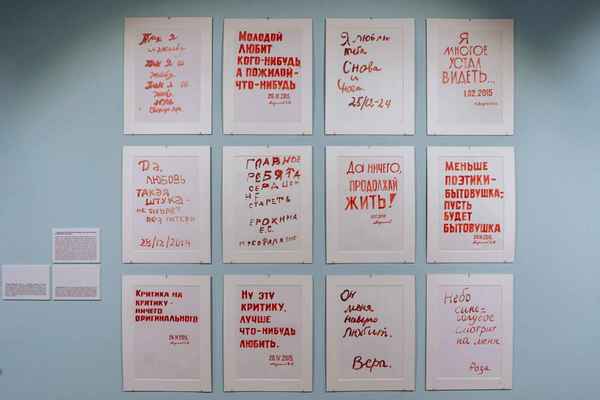 Так я
и живу
Так я и
живу
Так я и
живу
МОЛОДОЙ
ЛЮБИТ
КОГО-НИБУДЬ
А ПОЖИЛОЙ-
ЧТО-НИБУДЬ
Я люблю
тебя
Снова
и
Я
МНОГОЕ
УСТАЛ
ВИДЕТЬ...
1.02.2015
Да,
ЛЮБОВЬ
ТАКАЯ
ШТУКА-
НЕ БЫВАЕТ
БЕЗ ПОТЕРИ
28/12/2014
ГЛАВНОЕ
РЕБЯТА
СЕРДЦЕМ
НЕ
СТАРЕТЬ
ЕРОХИНА
Е.С.
ДА НИЧЕГО,
ПРОДОЛЖАЙ
ЖИТЬ!
МЕНЬШЕ
ПОЭТИКИ-
БЫТОВУШКА;
ПУСТЬ
БУДЕТ
БЫТОВУШКА
КРИТИКА НА
КРИТИКУ-
НИЧЕГО
ОРИГИНАЛЬНОГО
НУ ЭТУ
КРИТИКУ,
ЛУЧШЕ
ЧТО-НИБУДЬ
ЛЮБИТЬ.
Он
меня
наверно
любит.
Вера.
Небо
сине-
голубое
смотрит
на меня
Роза